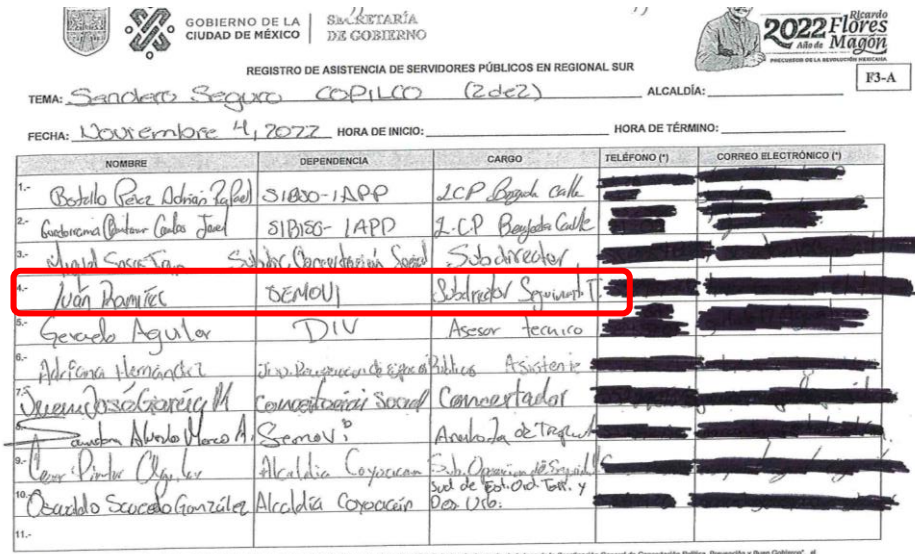 GOBIERNO DE LA
CIUDAD DE MÉXICO
SECRETARÍA
DE GOBIERNO
2022 Ricardo
Flores
Año de Magón
PRECURSOR DE LA REVOLUCIÓN MEXICANA
REGISTRO DE ASISTENCIA DE SERVIDORES PÚBLICOS EN REGIONAL SUR
F3-A
TEMA: Sendero Seguro COPILCO (2de2) ALCALDÍA:
FECHA: Noviembre 4, 2022 HORA DE INICIO: HORA DE TÉRMINO:
NOMBRE DEPENDENCIA CARGO TELÉFONO (*) CORREO ELECTRÓNICO (*)
1.- Botello Pérez Adrián Rafael SIBISO-IAPP LCP Brigada Calle
2.- Carlos SIBISO-IAPP L.C.P Brigada Calle
3.- Concertación Social Subdirector
4.- Iván Ramírez SEMOVI Subdirector Seguimiento T.
5.- Gerardo Aguilar DIV Asesor tecnico
6.- Adriana Hernández Públicos Asistente
7.- Juan José García M Concertación Social Concertador
8.- Alvarado Marco A. Semovi Analista de
9.- Alcaldia Coyoacan Sub.
10.- Osvaldo Salcedo González Alcaldía Coyoacán Sud de Est. Ord. Terr. y
Des Urb.
11.-